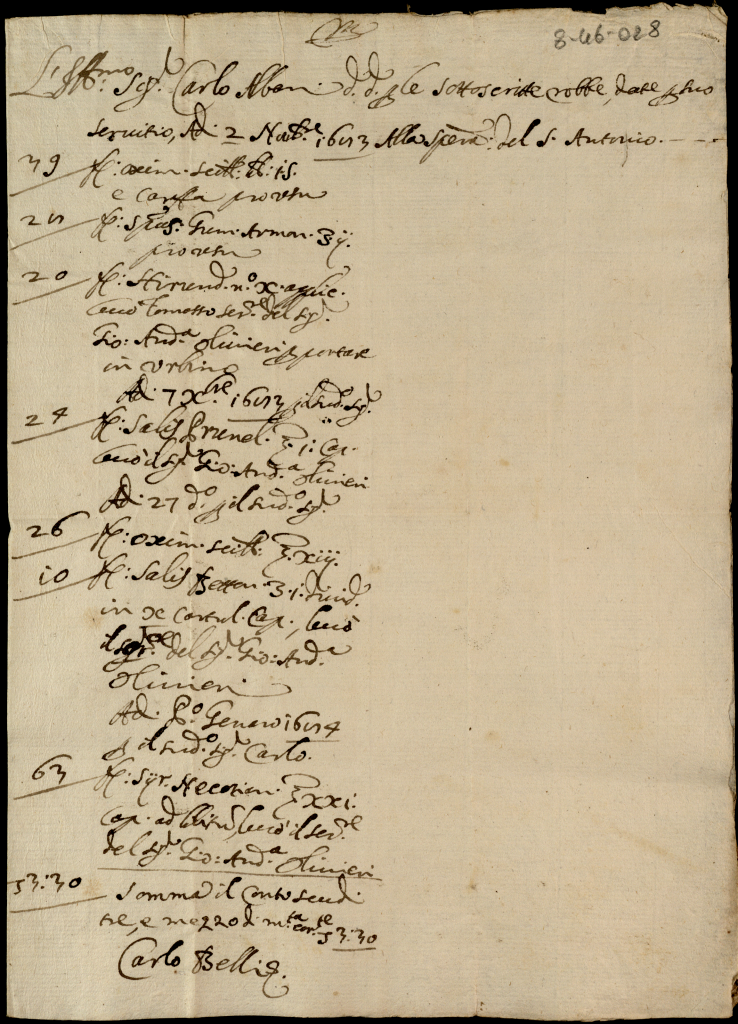 8-46-028
L'Ill.mo Sig.r Carlo Alban. d. d. p le sottoscritte robbe, date p suo
servitio, Ad. 2 Nov.bre 1653 Alla spera. del S. Antonio.
39 R.: oxim. scill. ℔. is.
e Caraffa provesu
R.: Gum. Armon. ʒ ij.
provesu
20 R.: n.o x. applic.
levò Tomasso ser.re del Sig.r
Gio: And.a Olivieri p portare
in Urbino
Ad. 7 X.bre 1653 p il sud.o Sig.r
24 R.: Salis Prunel. ʒ i: Cap.
levò il Sig.r Gio: And.a Olivieri
Ad. 27 d.o p il sud.o Sig.r
26 R.: oxim. scill. ʒ. xiij.
10 R.: Salis ʒ. i. divid.
in x cartul. Cap., levò
il ser.re del Sig.r Gio: And.a
Olivieri
Ad. P.o Genaro 1654
p il sud.o Sig.r Carlo.
63 R.: Syr. Nicotian. ʒ xxi.
Cap. ad levò il ser.re
del Sig.r Gio: And.a Olivieri
3:30 Somma il Conto scudi
tre, e mezzo di m.ta 3:30
Carlo Belli